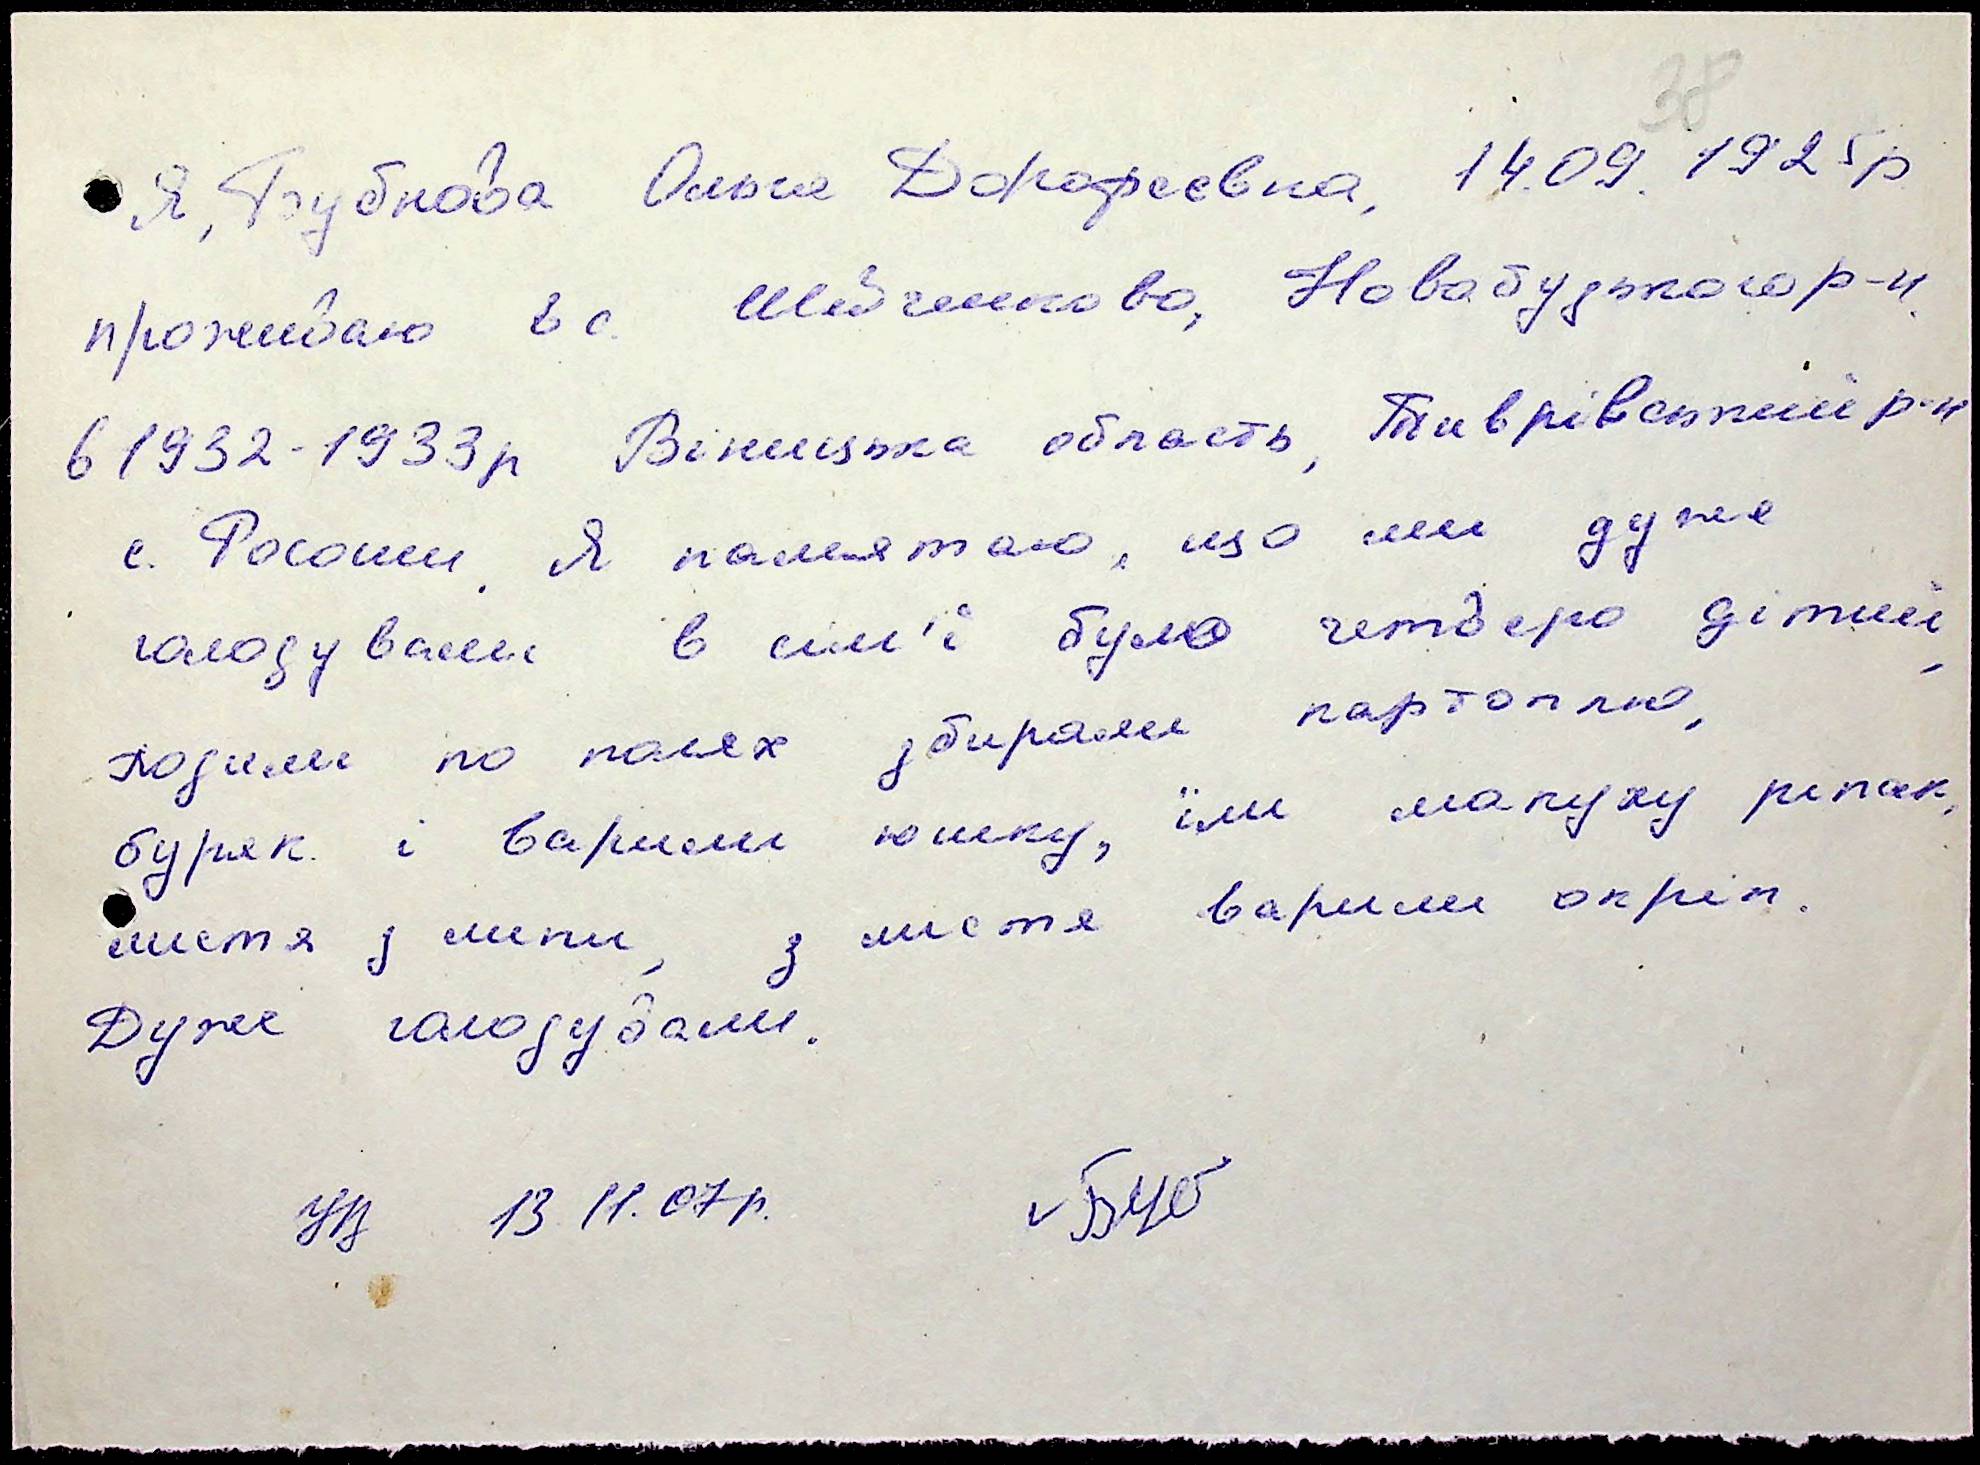 38
Я, Бубнова Ольга Дорофеевна, 14.09.1925р
проживаю в с. Шевченково, Новобузького р-н.
в 1932-1933р Віницька область, Тиврівський р-н
с. Росоши. Я памятаю, що ми дуже
голодували в сім'ї було четверо дітий,
ходили по полях збирали картоплю,
буряк. і варили юшку, їли макуху ріпак,
листя з липи, з листя варили окріп.
Дуже голодували.
13.11.07р. Буб